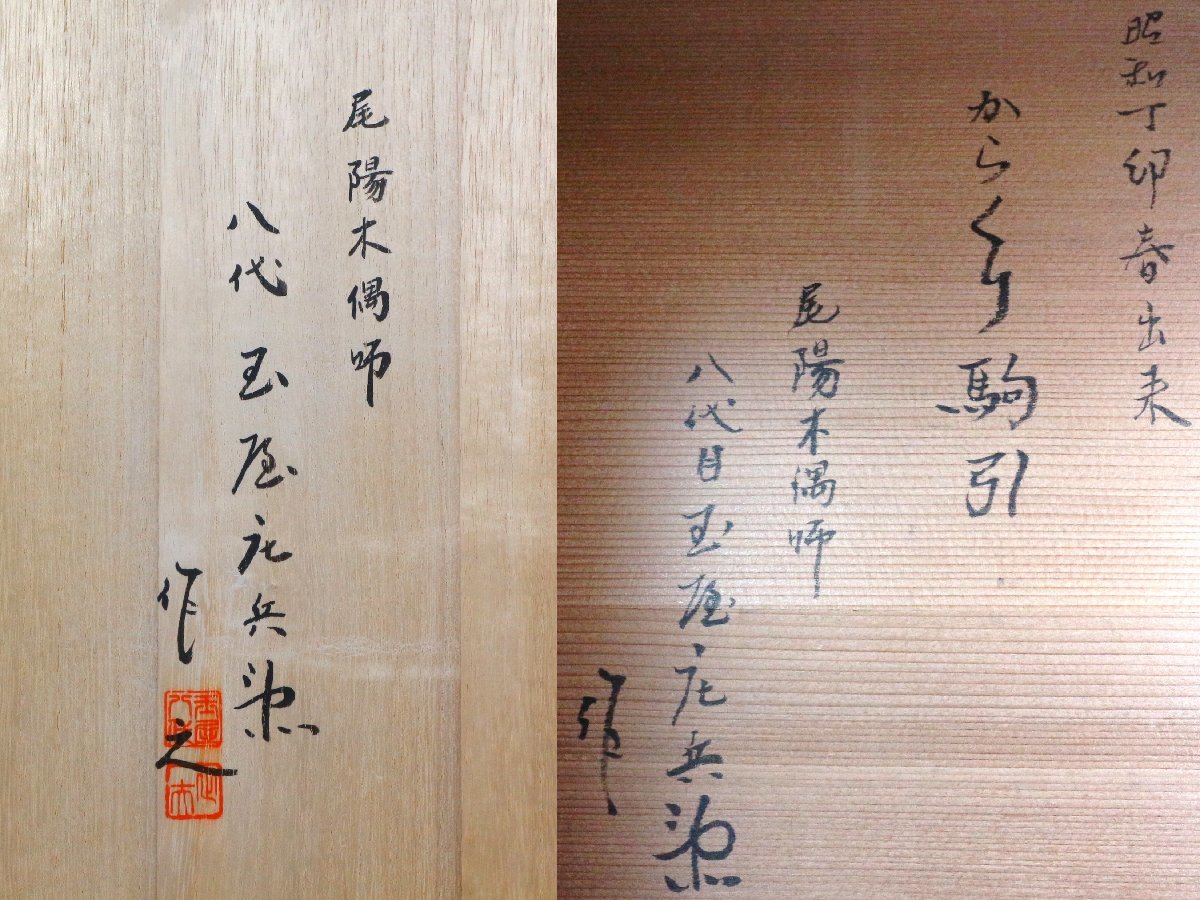 尾陽木偶師
八代玉屋庄兵衛
作之
昭和丁卯春出来
からくり駒引
尾陽木偶師
八代目玉屋庄兵衛
作